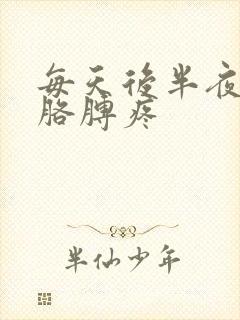 每天後半夜
胳膊疼
半仙少年